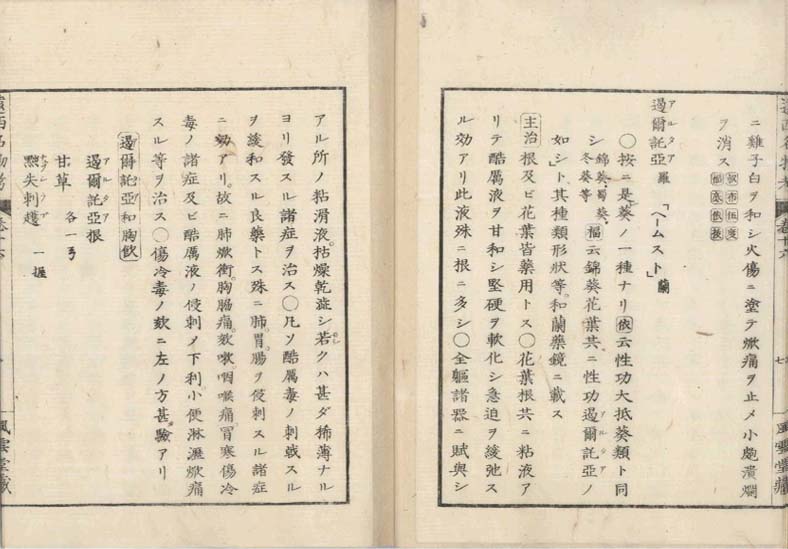 ニ雞子白ヲ和シ火傷ニ塗テ焮痛ヲ止メ小瘡潰爛
ヲ消ス
過爾託亞 羅 「ヘームスト」蘭
アルタア
〇按ニ是葵ノ一種ナリ依云性功大抵葵類ト同
シ 錦葵、蜀葵、冬葵等 福云錦葵花葉共ニ性功過爾託亞ノ
アルタア
如シト其種類形狀等和蘭藥鏡ニ載ス
主治 根及ビ花葉皆藥用トス〇花葉根共ニ粘液ア
リテ酷厲液ヲ甘和シ堅硬ヲ軟化シ急迫ヲ緩弛ス
ル効アリ此液殊ニ根ニ多シ〇全軀諸器ニ賦與シ
七
風雲堂藏
アル所ノ粘滑液枯燥乾澁シ若クハ甚ダ稀薄ナル
ヨリ發スル諸症ヲ治ス〇凡ソ酷厲毒ノ刺戟スル
ヲ緩和スル良藥トス殊ニ肺胃腸ヲ侵刺スル諸症
ニ効アリ故ニ肺焮衝胸膈痛欬嗽咽喉痛冒寒傷冷
毒ノ諸症及ビ酷厲液ノ侵刺メ下利小便淋瀝焮痛
スル等ヲ治ス〇傷冷毒ノ欬ニ左ノ方甚驗アリ
過爾託亞和胸飲
過爾託亞根
アルタア
甘草 各一弓
㸃失刺蘧 一握
風雲堂藏